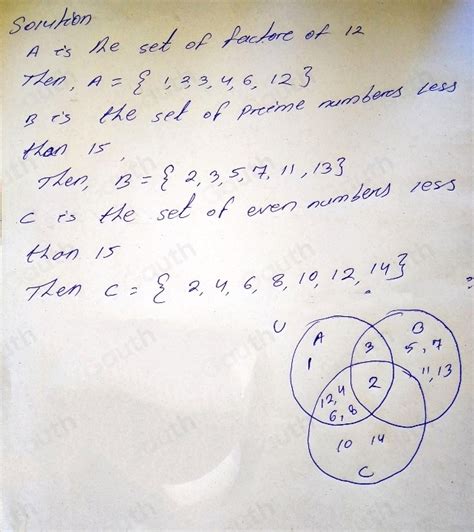 Solution
A is the set of factors of 12
Then, A = { 1, 2, 3, 4, 6, 12 }
B is the set of prime numbers less
than 15,
Then, B = { 2, 3, 5, 7, 11, 13 }
C is the set of even numbers less
than 15
Then C = { 2, 4, 6, 8, 10, 12, 14 }
U
A
B
1
3
5, 7
2
11, 13
12, 4
6, 8
10 14
C